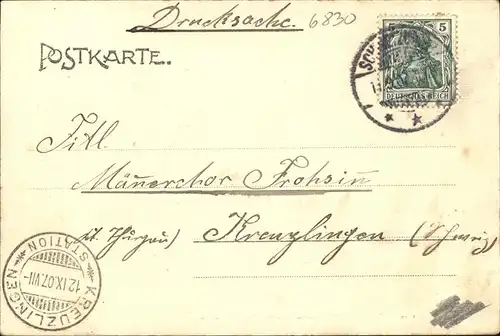 Drucksache. 6830
POSTKARTE.
5
DEUTSCHES REICH
SCH
Titl.
Männerchor Frohsinn
kt. Thurgau) Kreuzlingen (Schweiz)
KREUZLINGEN
STATION
12.IX.07.VII-